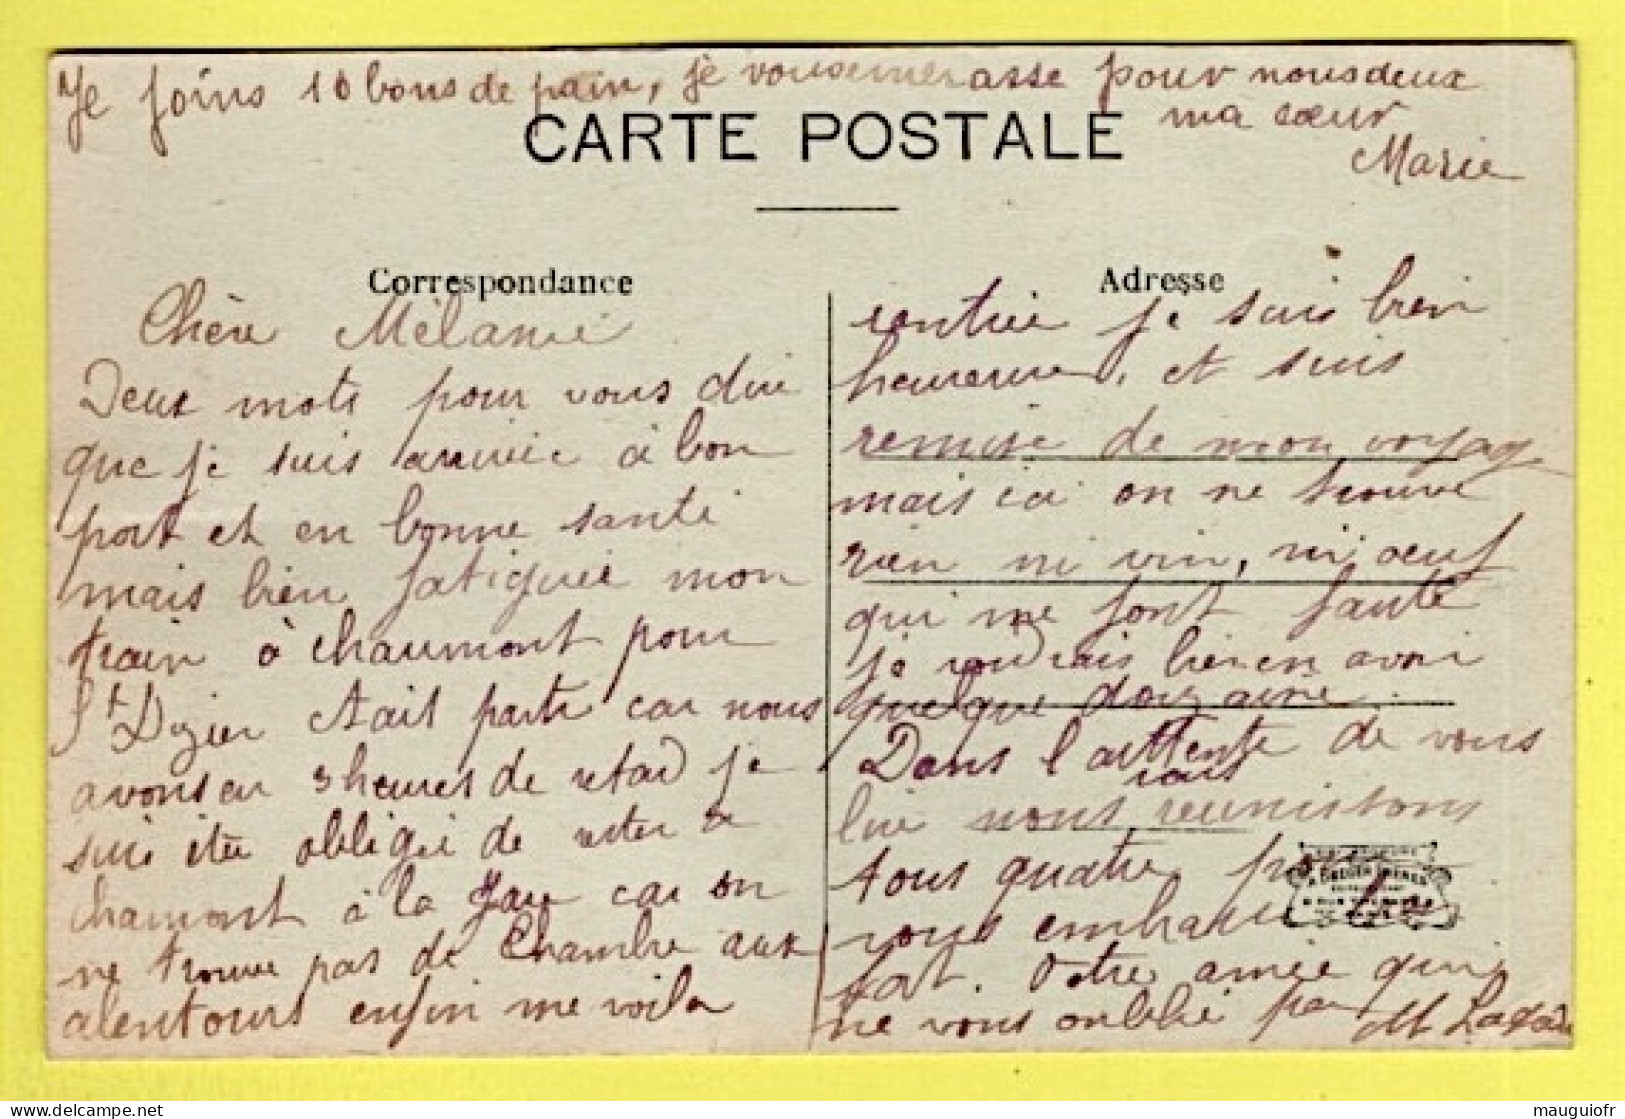 Je joins 10 bons de pain, je vous emerasse pour nous deux
ma cœur
Marie
CARTE POSTALE
Correspondance
Chère Mélanie
Deux mots pour vous dire
que je suis arrivée à bon
port et en bonne santé
mais bien fatiguée mon
train à Chaumont pour
St Dizier était parti car nous
avons eu 3 heures de retard je
suis étée obligée de rester a
chamont à la gare car on
ne trouve pas de Chambre aux
alentours enfin me voila
Adresse
rentrée je suis bien
heureuse, et suis
remise de mon voyage
mais ici on ne trouve
rien ni vin, ni oeuf
qui me font faute
je voudrais bien en avoir
quelque douzaine.
Dans l'attente de vous
lire nous nous reunissons
tous quatre pour
vous embrasser
fort. Votre amie qui
ne vous oublié pas M
mauguiofr